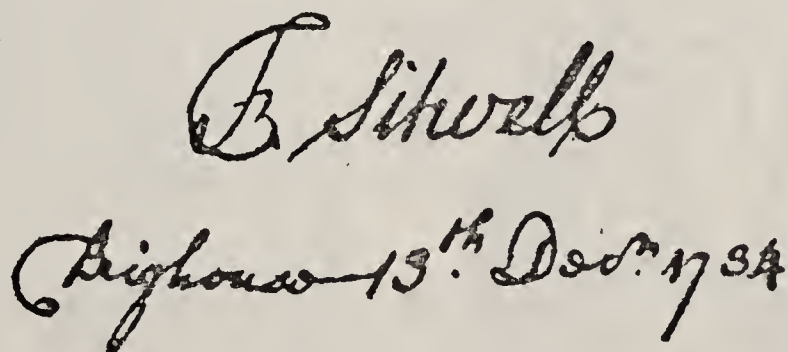 F Sitwell
Brighouse 13th Decm. 1734